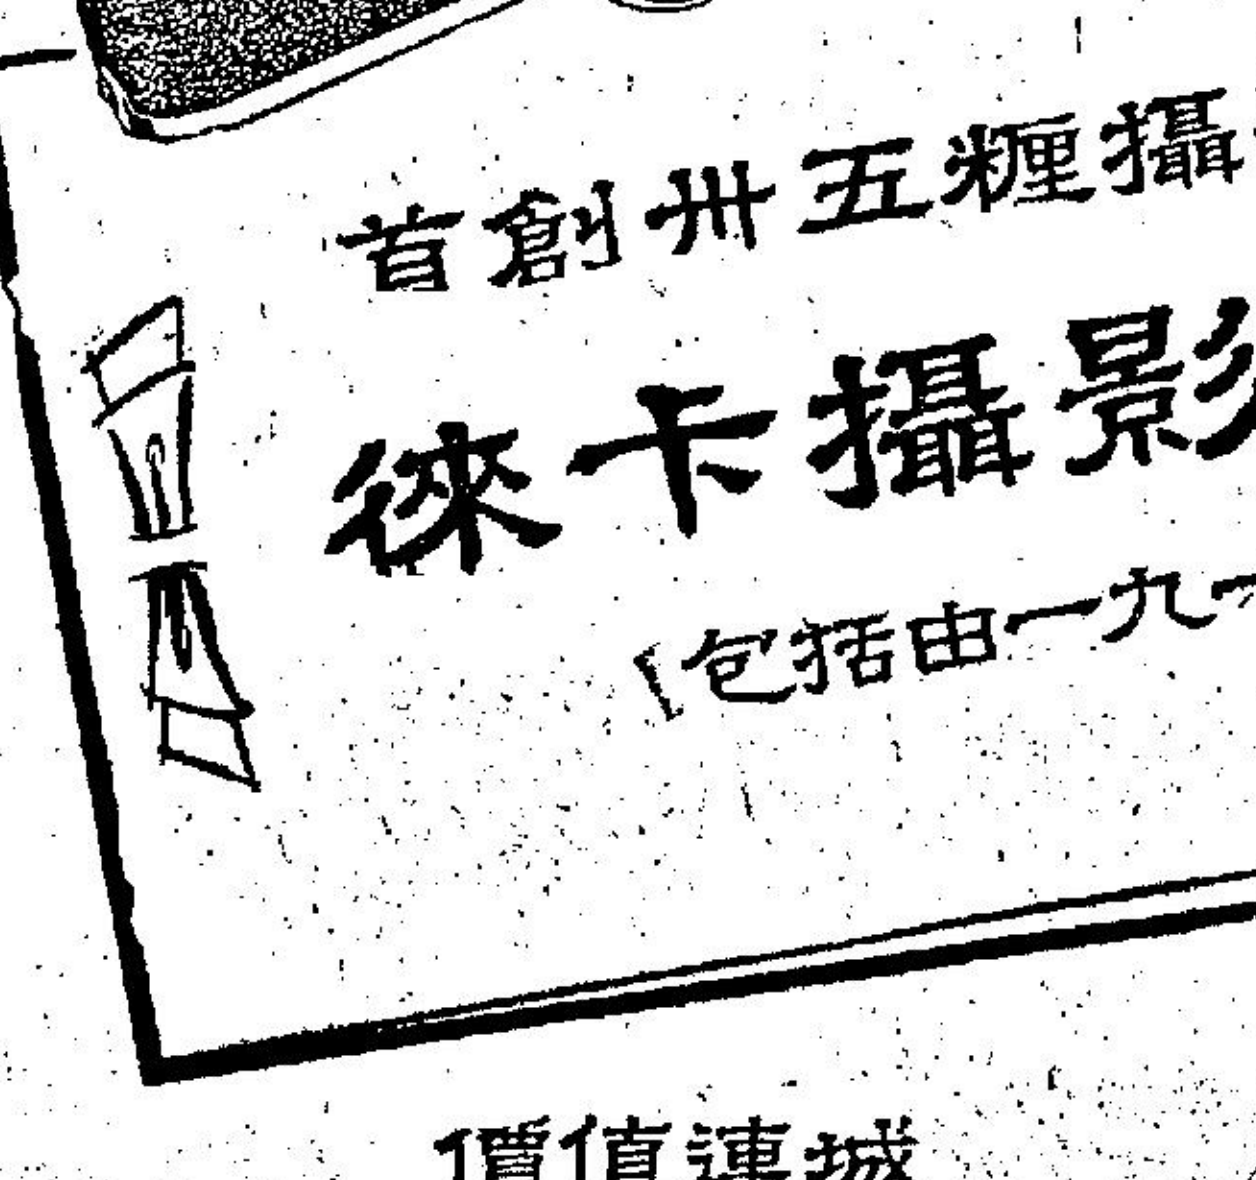 首創卅五糎攝
徠卡攝影
(包括由一九一
價值連城